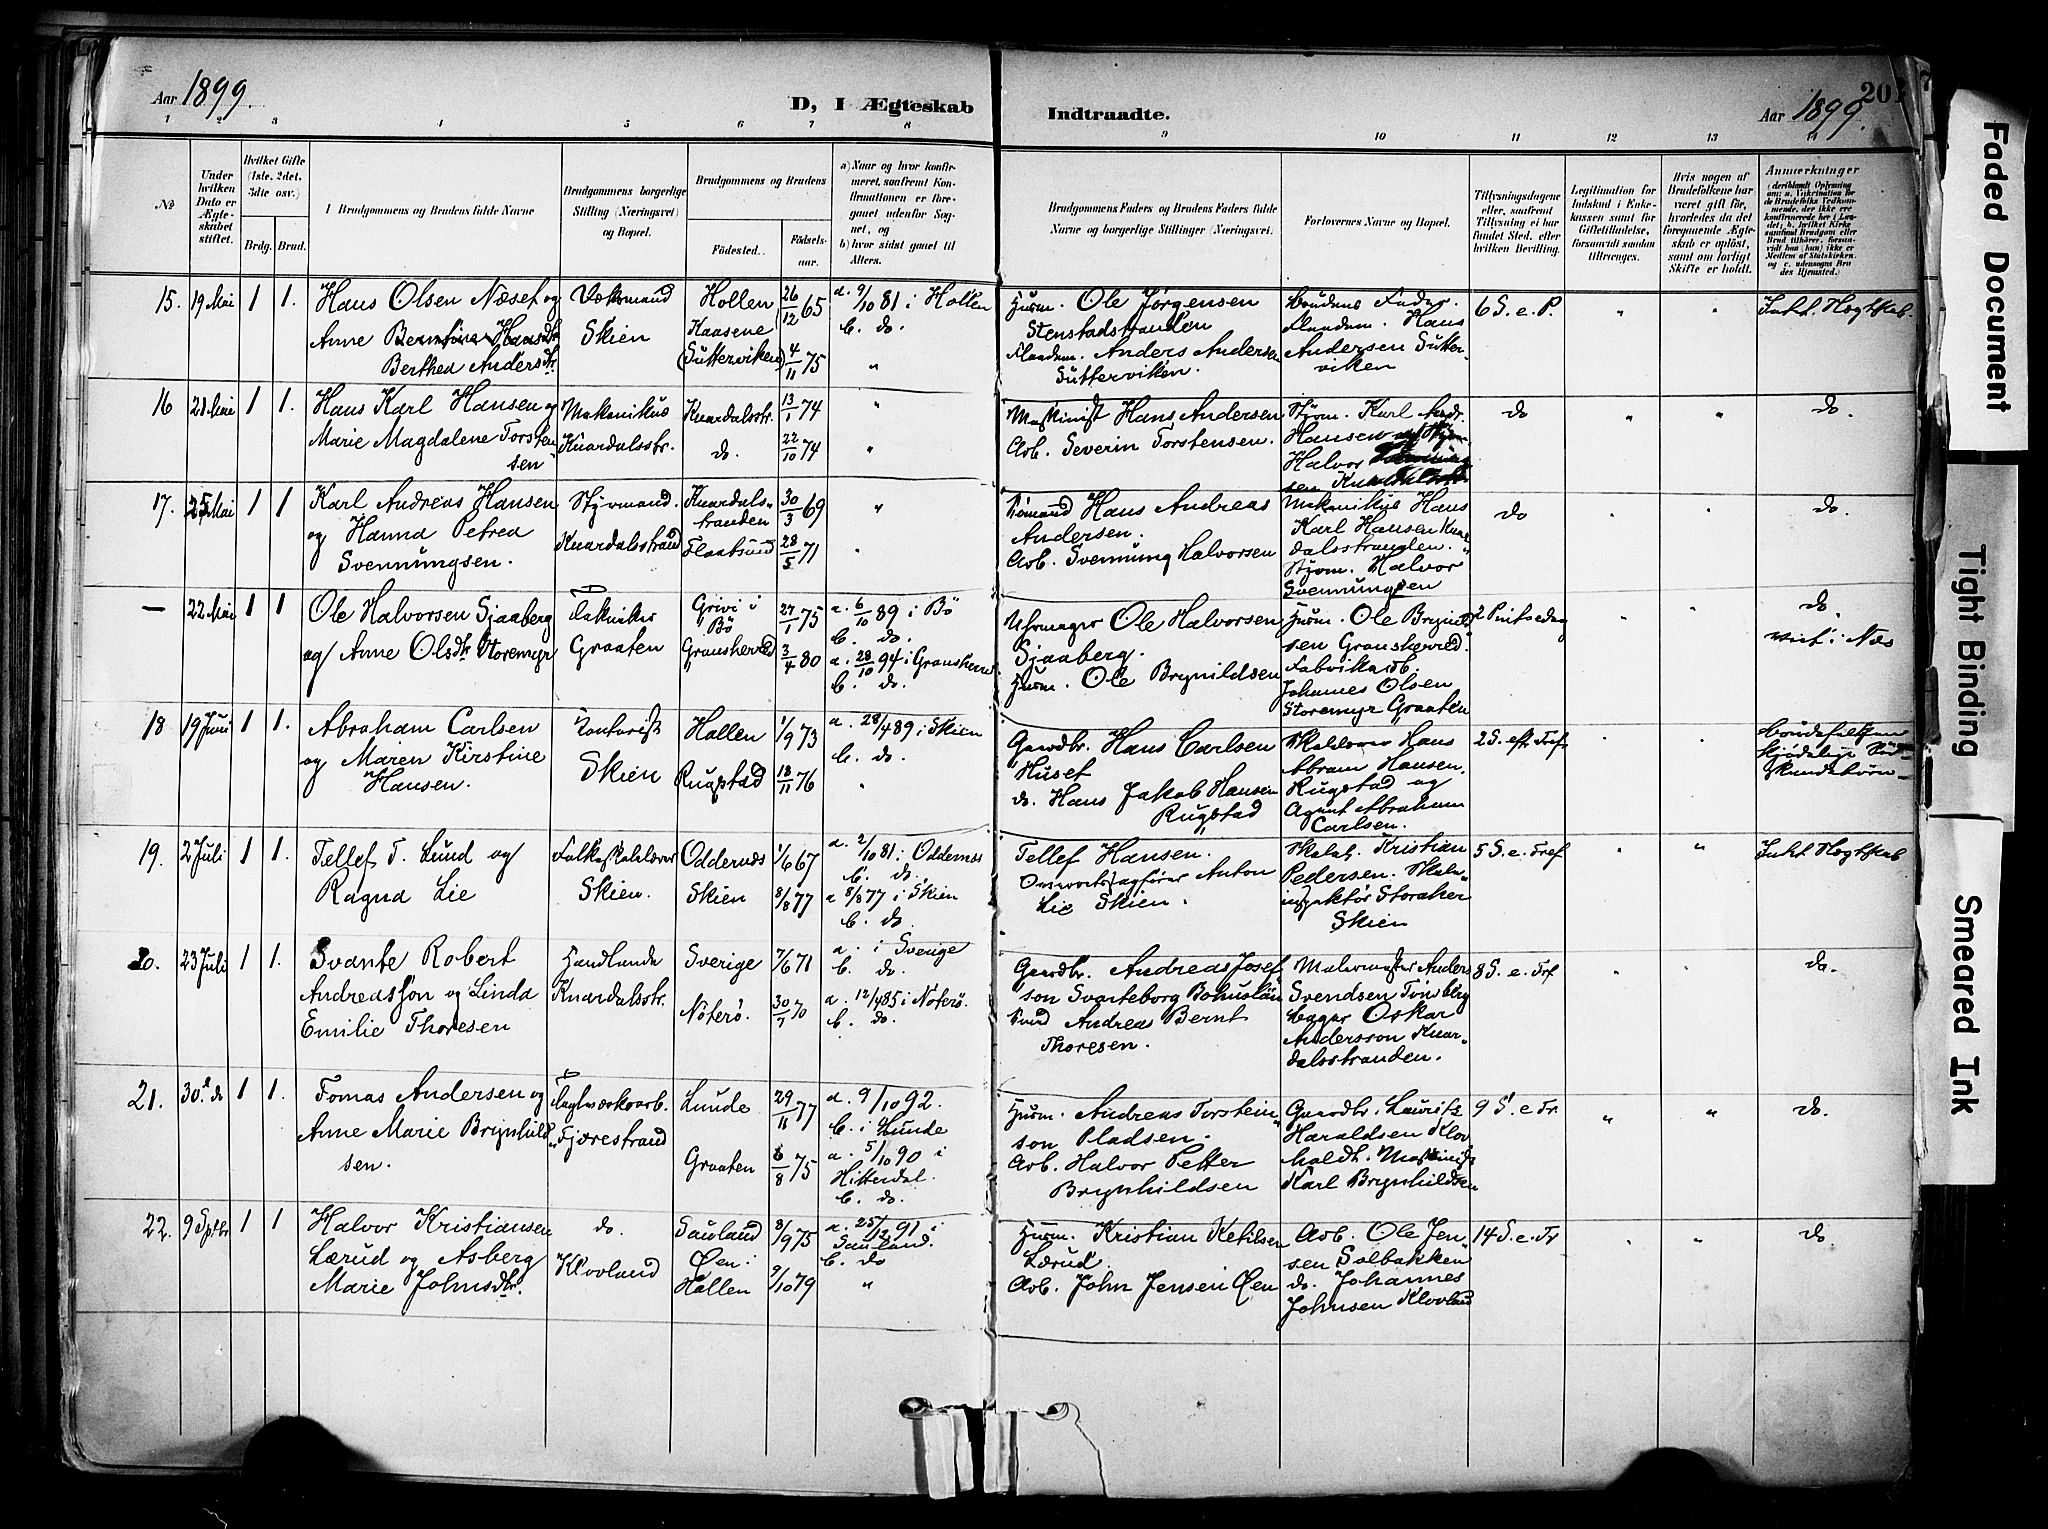 Aar 1899.
D, I Ægteskab
Indtraadte.
Aar 1899.
201
1 2 3 4 5 6 7 8 9 10 11 12 13 14
No
Under hvilken Dato er Ægteskabet stiftet.
Hvilket Gifte (1ste, 2det, 3die osv.)
Brdg. Brud.
1 Brudgommens og Brudens fulde Navne
Brudgommens borgerlige Stilling (Næringsvei) og Bopæl.
Brudgommens og Brudens
Fødested.
Fødselsaar.
a) Naar og hvor konfirmeret, saafremt Konfirmationen er foregaaet udenfor Sognet, og
b) hvor sidst gaaet til Alters.
Brudgommens Faders og Brudens Faders fulde Navne og borgerlige Stillinger (Næringsvei).
Forlovernes Navne og Bopæl.
Tillysningsdagene eller, saafremt Tillysning ei har fundet Sted, efter hvilken Bevilling.
Legitimation for Indskud i Enkekassen samt for Giftetilladelse, forsaavidt saadan tiltrænges.
Hvis nogen af Brudefolkene har været gift før, hvorledes da det foregaaende Ægteskab er opløst, samt om lovligt Skifte er holdt.
Anmerkninger
15. 19 Mai 1 1. Hans Olsen Næset og
Anne
Berthea Andersdtr
Skien
Hollen
Kaasene
(Sutterviken)
26/12 65
4/11 75
a. 9/10 81 i Hollen
b. do.
Husm. Ole Jørgensen
Stenstadstranden
Anders Andersen
Sutterviken.
Brudens Fader.
Hans
Andersen Sutterviken
6 S. e. P. " "
16 21 Mai 1 1. Hans Karl Hansen og
Marie Magdalene Torstensen
Mekanikus
Knardalsstr.
Knardalsstr.
do.
13/1 74
22/10 74
"
"
Maskinist Hans Andersen
Arb. Severin Torstensen.
Styrm. Karl Andr.
Hansen
Halvor
do " " do.
17. 25 Mai 1 1 Karl Andreas Hansen
og Hanna Petrea
Svennungsen.
Styrmand.
Knardalsstrand
Knardalsstranden
Flaatsund
30/3 69
28/5 71
"
"
Hans Andreas
Andersen.
Arb. Svennung Halvorsen
Mekanikus Hans
Karl Hansen Knardalsstranden.
Styrm. Halvor
Svennungsen
do " " do.
— 22 Mai 1 1 Ole Halvorsen Sjaaberg
og Anne Olsdtr Storemyr
Graaten
Grivi i Bø
Gransherred
27/1 75
3/4 80
a. 6/10 89 i Bø
b. do.
a. 28/10 94 i Gransherred
b. do.
Uhrmager Ole Halvorsen
Sjaaberg.
Husm. Ole Brynildsen
Husm. Ole Brynildsen Gransherred.
Fabrikarb.
Johannes Olsen
Storemyr Graaten
2 Pintsedag " "
do.
viet i Næs
18 19 Juni 1 1. Abraham Carlsen
og Maren Kirstine
Hansen.
Kontorist
Skien
Hollen
Rugstad
1/9 73
18/11 76
a. 28/4 89 i Skien
b. do.
"
Gaardbr. Hans Carlsen
Huset
do. Hans Jakob Hansen
Rugstad
Hans
Abram Hansen.
Rugstad og
Agent Abraham
Carlsen.
2 S. eft. Tref. " "
Brudefolkene
19. 2 Juli 1 1. Tellef T. Lund og
Ragna Lie
Folkeskolelærer
Skien.
Oddernæs
Skien
1/6 67
8/8 77
a. 2/10 81 i Oddernæs
b. do.
a 8/8 77 i Skien
b. do.
Tellef Hansen.
Overretssagfører Anton
Lie Skien.
Kristian
Pedersen. Skoleinspektør Storaker
Skien
5 S. e. Tref " "
20. 23 Juli 1 1. Svante Robert
Andreasson og Linda
Emilie Thoresen
Handlende
Knardalsstr.
Sverige
Nøterø.
7/6 71
30/7 70
a. i Sverige
b. do.
a. 12/4 85 i Nøterø.
b. do.
Gaardbr. Andreas Josefson Svarteborg Bohuslän
Andreas Bernt
Thoresen.
Malermester Anders
Svendsen Tønsberg
Bager Oskar
Andersson Knardalsstranden.
8 S. e. Tref " " do.
21. 30. do 1 1. Tomas Andersen og
Anne Marie Brynhildsen.
Teglværksarb.
Fjærestrand
Lunde
Graaten
29/11 77
6/8 75
a. 9/10 92.
b. i Lunde
a. 5/10 90 i
Hitterdal.
b. do.
Husm. Andreas Torsteinson Pladsen.
Arb. Halvor Petter
Brynhildsen
Gaardbr. Laurits
Haraldsen Klovholdt. Maskinist
Karl Brynhildsen
9 S. e Tr. " " do.
22. 9 Sptbr 1 1 Halvor Kristiansen
Lærud og Asberg
Marie Johnsdtr.
do.
Klovland
Sauland
Øen i
Hollen
3/9 75
9/10 79
a. 25/12 91 i
Sauland.
b. do
"
Husm. Kristian Ketilsen
Lærud.
Arb. John Jensen Øen
Arb. Ole Jensen Solbakken
do. Johannes
Johnsen Klovland
14 S. e. Tr " " do.
Faded Document
Tight Binding
Smeared Ink